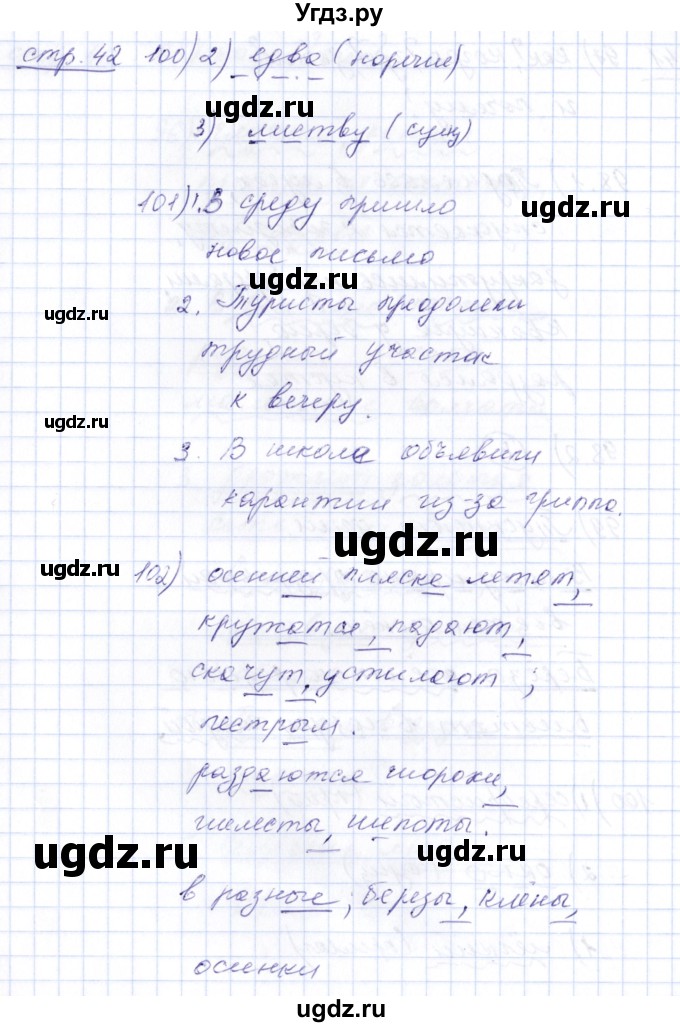 Угдз.ру
стр. 42 100) 2) едва (наречие)
ugdz.ru
3) листву (сущ)
101) 1. В среду пришло
ugdz.ru
новое письмо
ugdz.ru
2. Туристы преодолели
ugdz.ru
трудный участок
к вечеру.
ugdz.ru
ugdz.ru
3. В школе объявили
карантин из-за гриппа.
ugdz.ru
102) осенней пляске летят,
ugdz.ru
кружатся, падают,
скачут, устилают;
пестрым.
раздаются шорохи,
шелесты, шепоты.
ugdz.ru
ugdz.ru
в разные; березы, клёны,
осинки
ugdz.ru